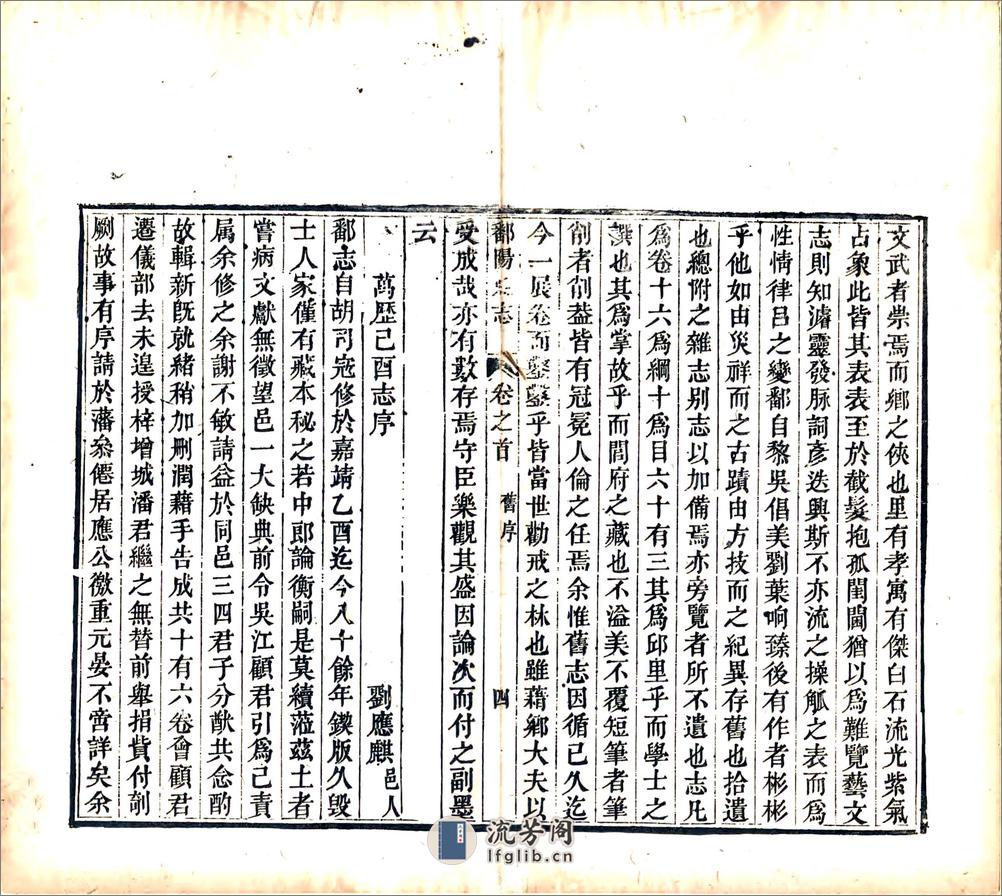 文武者崇焉而鄉之俠也里有孝寓有傑白石流光紫氣
占象此皆其表表至於截髮抱孤閨閫猶以為難覽藝文
志則知濬靈發脉詞彥迭興斯不亦流之操觚之表而為
性情律呂之變鄱自黎吳倡美劉葉响臻後有作者彬彬
乎他如由災祥而之古蹟由方技而之紀異存舊也拾遺
也總附之雜志别志以加備焉亦旁覽者所不遺也志凡
為卷十六為綱十為目六十有三其為邱里乎而學士之
譔也其為掌故乎而閭府之藏也不溢美不覆短筆者筆
削者削葢皆有冠冕人倫之任焉余惟舊志因循已久迄
今一展卷而鑿鑿乎皆當世勸戒之林也雖藉鄉大夫以
鄱陽志 卷之首 舊序 四
受成哉亦有數存焉守臣樂觀其盛因論次而付之副墨
云
萬歷己酉志序 劉應麒邑人
鄱志自胡司寇修於嘉靖乙酉迄今八十餘年鍥版久毁
士人家僅有藏本秘之若中郎論衡嗣是莫續蒞茲土者
嘗病文獻無徵望邑一大缺典前令吳江顧君引為己責
屬余修之余謝不敏請益於同邑三四君子分猷共念酌
故輯新既就緒稍加刪潤藉手告成共十有六卷會顧君
遷儀部去未遑授梓增城潘君繼之無替前舉捐貲付剞
劂故事有序請於藩叅僊居應公徵重元晏不啻詳矣余
流芳阁
lfglib.cn